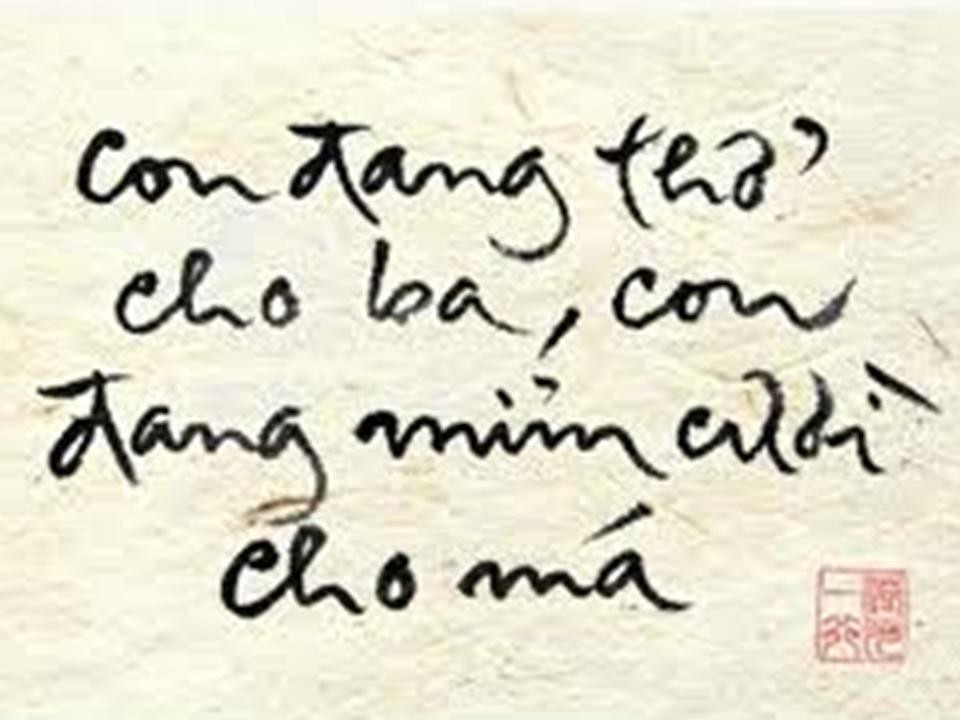 con đang thở
cho ba, con
đang mỉm cười
cho má